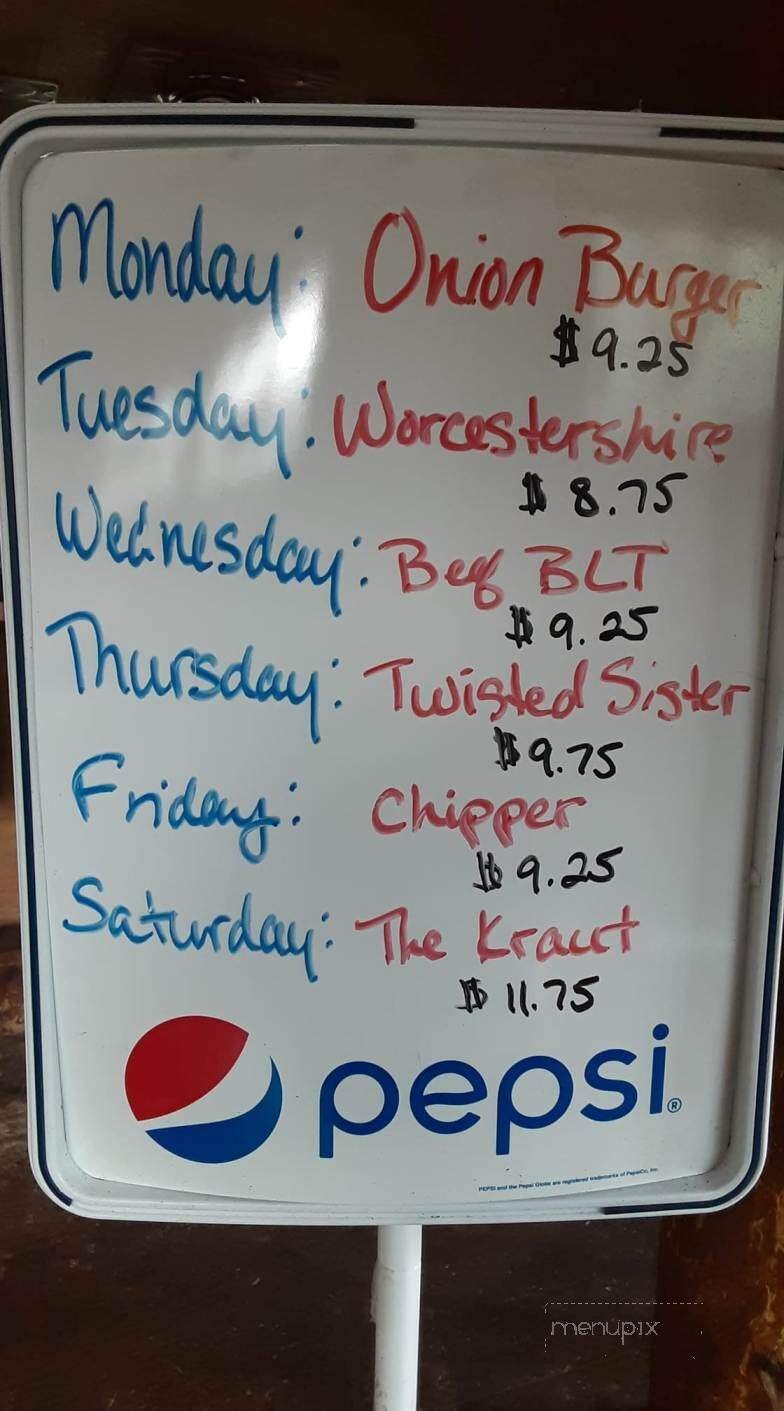 Monday: Onion Burger
$9.25
Tuesday: Worcestershire
$8.75
Wednesday: Beef BLT
$9.25
Thursday: Twisted Sister
$9.75
Friday: Chipper
$9.25
Saturday: The Kraut
$11.75
pepsi®
PEPSI and the Pepsi Globe are registered trademarks of PepsiCo, Inc.
menupix